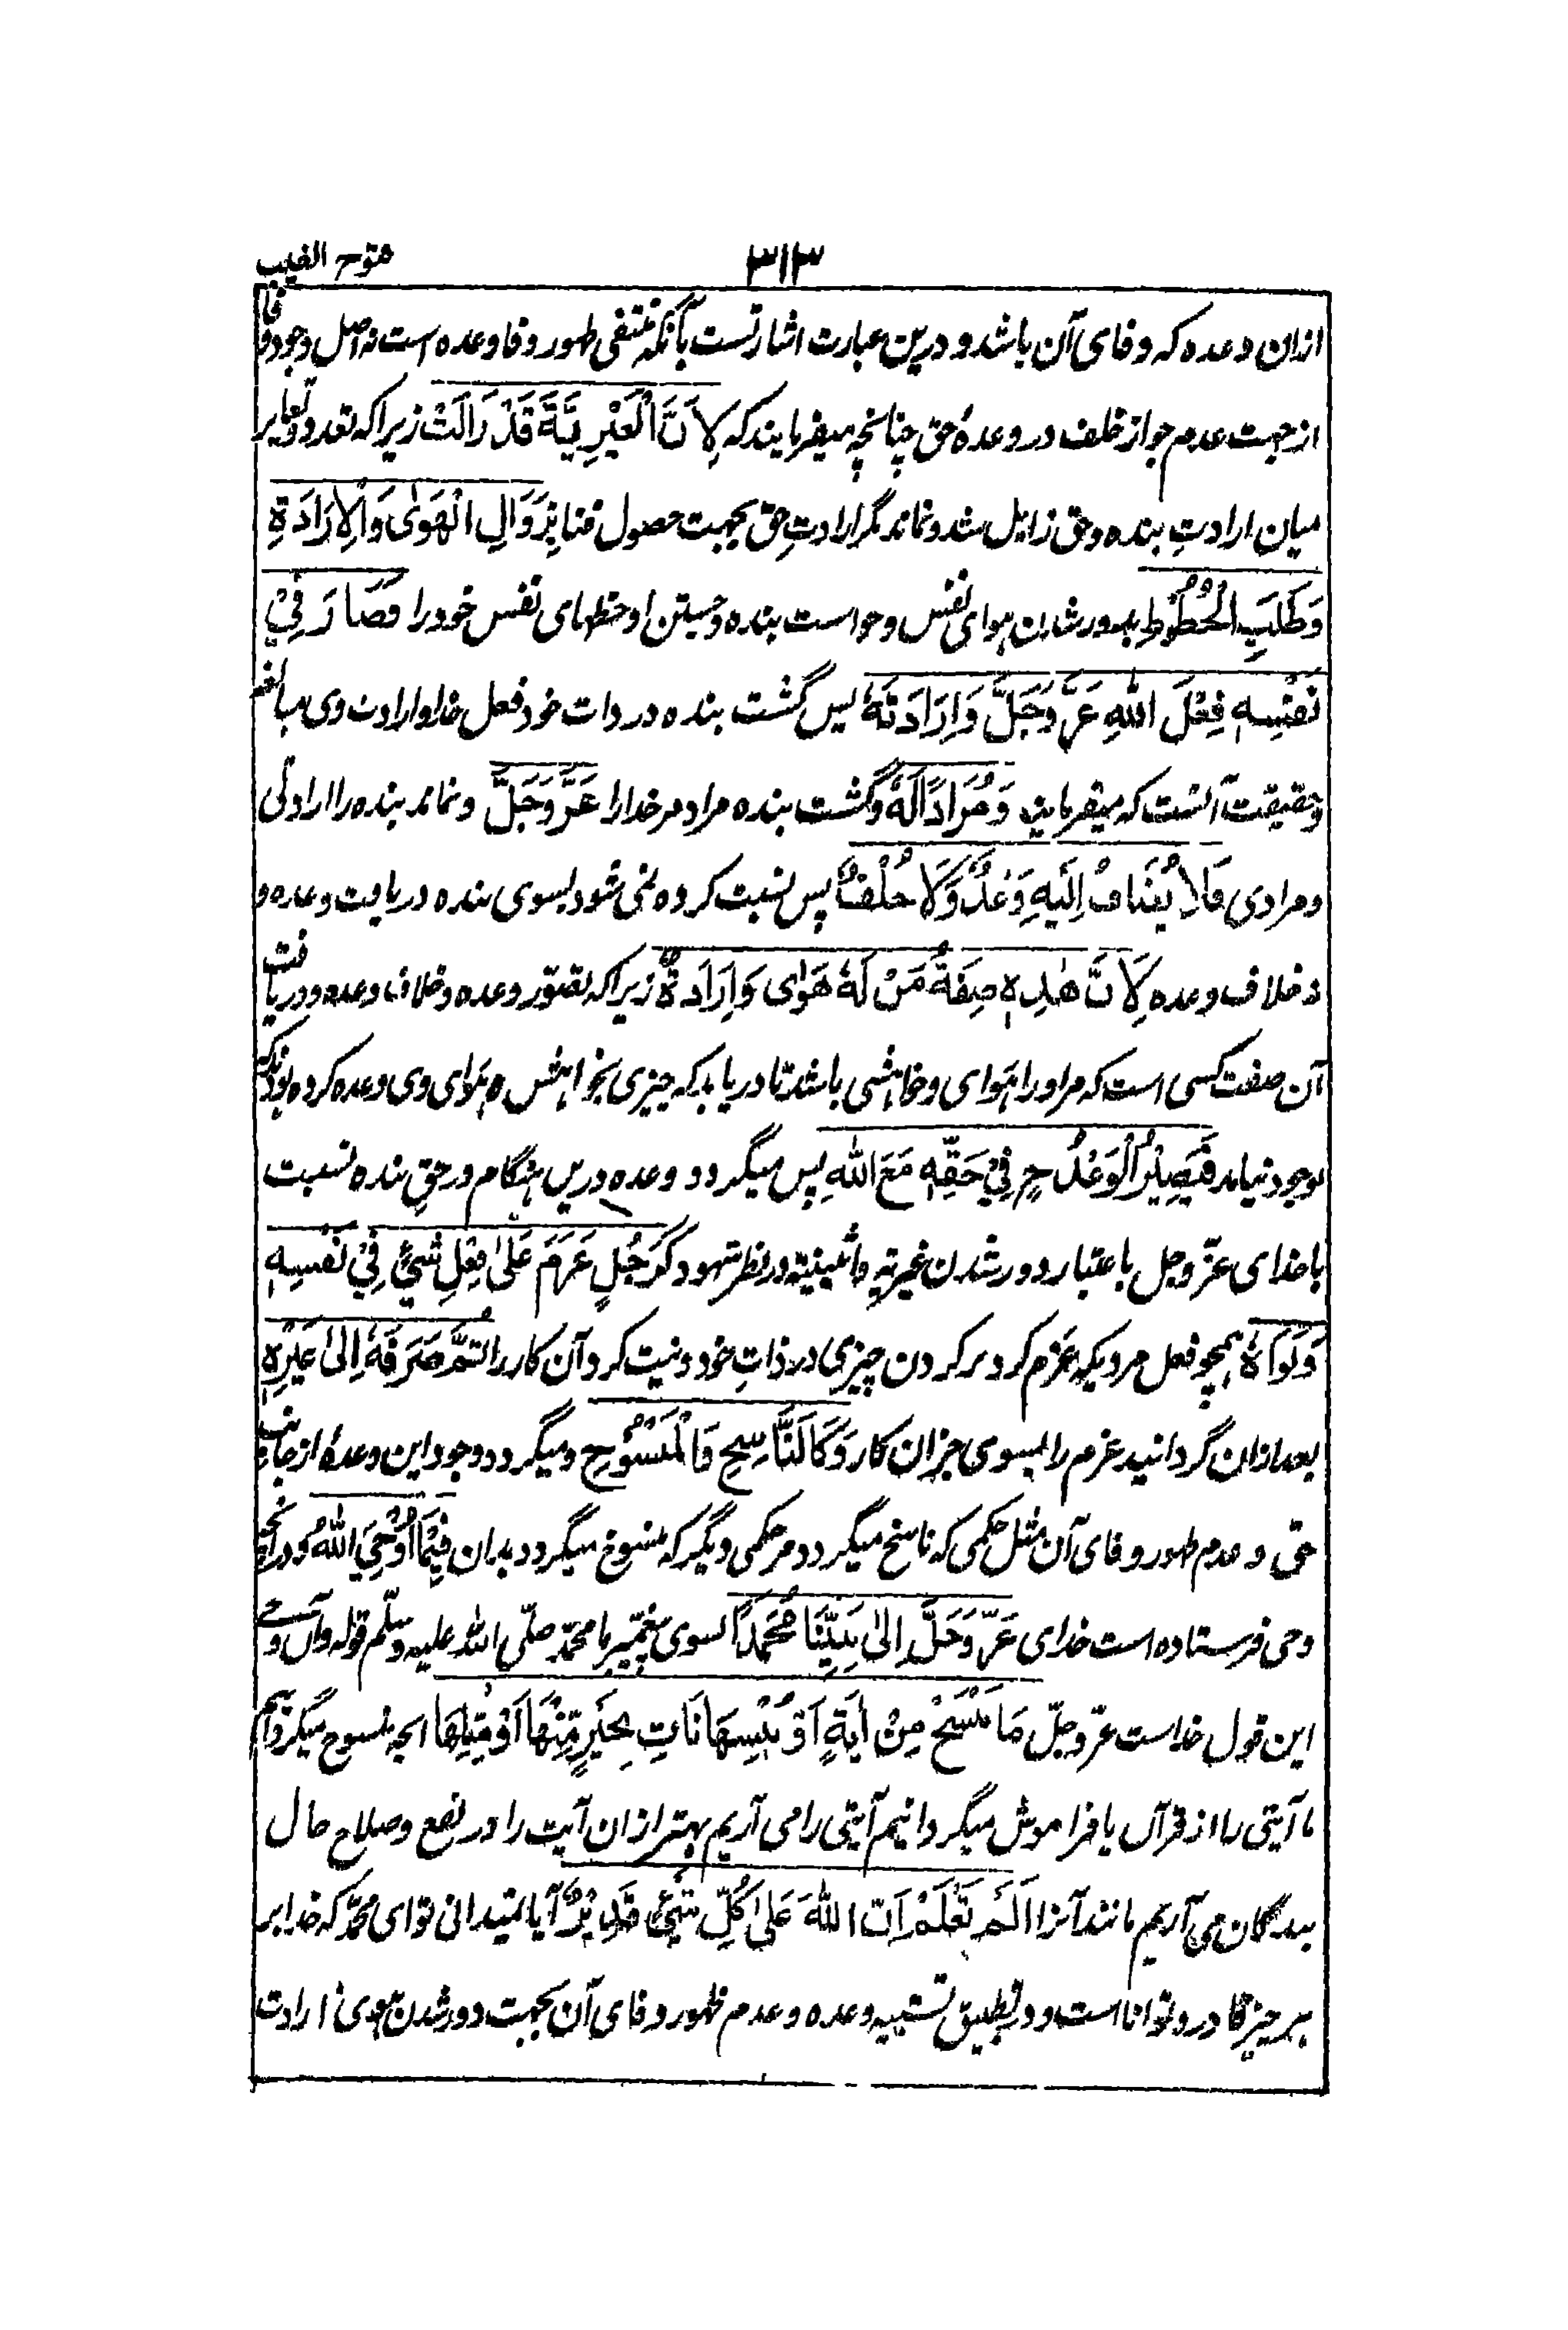 ۳۱۳
فتوح الغیب
ازان وعده که وفای آن باشد و درین عبارت اشارتست بآنکه منتفی ظهور وفا وعده است نه اصل وجود وفا
از جهت عدم جواز خلف در وعدهٔ حق چنانچه میفرمایند که لِاَنَّ الْغَیْرِیَّةَ قَدْ زَالَتْ زیرا که تعدد و تغایر
میان ارادتِ بنده و حق زایل شد و نماند مگر ارادتِ حق بجهت حصول فنا بِزَوَالِ الْهَوٰی وَالْاِرَادَةِ
وَطَلَبِ الْحُظُوْظِ بدور شدن هوای نفس و خواست بنده و جستن او حظهای نفس خود را فَصَارَ فِیْ
نَفْسِهٖ فِعْلَ اللهِ عَزَّ وَجَلَّ وَاِرَادَتَهٗ پس گشت بنده در ذات خود فعل خدا و ارادت وی مبالغه
وحقیقت آنست که میفرماید وَمُرَادًا لَهٗ و گشت بنده مراد مر خدا را عَزَّ وَجَلَّ و نماند بنده را ارادتی
و مرادی فَلَا یُضَافُ اِلَیْهِ وَعْدٌ وَّلَا خُلْفٌ پس نسبت کرده نمی شود بسوی بنده دریافت وعده و
نه خلاف وعده لِاَنَّ هٰذِهٖ صِفَةُ مَنْ لَهٗ هَوًای وَاِرَادَةٌ زیرا که تصور وعده و خلاف وعده و دریافت
آن صفت کسی است که مر او را هوای و خواهشی باشد تا دریابد که چیزی بخواهش و هوای وی وعده کرده بودند که
بوجود نیامد فَیَصِیْرُ الْوَعْدُ ح فِیْ حَقِّهٖ مَعَ اللهِ پس میگردد وعده درین هنگام در حقِ بنده نسبت
با خدای عزّ وجل باعتبار دور شدن غیریة و اثنینیة در نظر شهود کَرَجُلٍ عَزَمَ عَلٰی فِعْلِ شَیْءٍ فِیْ نَفْسِهٖ
وَنَوَاهُ همچو فعل مردیکه عزم کرد بر کردن چیزی در ذاتِ خود و نیت کرد آن کار را ثُمَّ صَرَفَهٗ اِلٰی غَیْرِهٖ
بعد ازان گردانید عزم را بسوی جز آن کار وَکَالنَّاسِخِ وَالْمَنْسُوْخِ و میگردد وجود این وعدهٔ از جانب
حق و عدم ظهور وفای آن مثل حکمی که ناسخ میگردد مر حکمی دیگر که منسوخ میگردد بدان فِیْمَا اَوْحَی اللهُ در آنچه
وحی فرستاده است خدای عَزَّ وَجَلَّ اِلٰی نَبِیِّنَا مُحَمَّدٍ بسوی پیغمبر ما محمد صلّی الله علیه وسلّم قوله و آن وحی
این قول خداست عزّ وجلّ مَا نَنْسَخْ مِنْ اٰیَةٍ اَوْ نُنْسِهَا نَاْتِ بِخَیْرٍ مِّنْهَا اَوْ مِثْلِهَا انچه منسوخ میگردانیم
ما آیتی را از قرآن یا فراموش میگردانیم آیتی را می آریم بهتر از ان آیت را در نفع و صلاح حال
بندگان می آریم مانند آنرا اَلَمْ تَعْلَمْ اَنَّ اللهَ عَلٰی کُلِّ شَیْءٍ قَدِیْرٌ آیا نمیدانی تو ای محمّد که خدا بر
هر چیز قادر و توانا است و در تطبیق تشبیه وعده و عدم ظهور وفای آن بجهت دور شدن هوی و ارادت